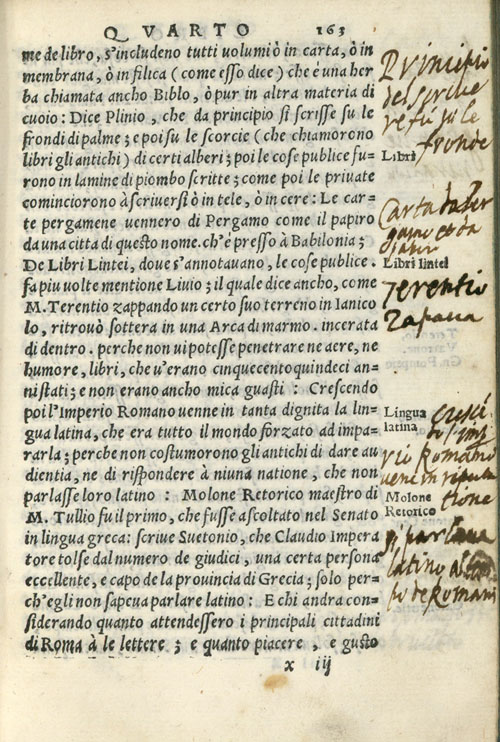 QVARTO 163
me de libro, s'includeno tutti uolumi ò in carta, ò in
membrana, ò in filica (come esso dice) che è una her
ba chiamata ancho Biblo, ò pur in altra materia di
cuoio: Dice Plinio, che da principio si scrisse su le
frondi di palme; e poi su le scorcie (che chiamorono
libri gli antichi) di certi alberi; poi le cose publice fu=
rono in lamine di piombo scritte; come poi le priuate
cominciorono à scriuersi ò in tele, ò in cere: Le car=
te pergamene uennero di Pergamo come il papiro
da una citta di questo nome. ch'è presso à Babilonia;
De Libri Lintei, doue s'annotauano, le cose publice.
fa piu uolte mentione Liuio; il quale dice ancho, come
M. Terentio zappando un certo suo terreno in Ianico
lo, ritrouò sottera in una Arca di marmo. incerata
di dentro. perche non ui potesse penetrare ne aere, ne
humore, libri, che u'erano cinquecento quindeci an=
ni stati; e non erano ancho mica guasti: Crescendo
poi l'Imperio Romano uenne in tanta dignita la lin=
gua latina, che era tutto il mondo forzato ad impa=
rarla; perche non costumorono gli antichi di dare au
dientia, ne di rispondere à niuna natione, che non
parlasse loro latino: Molone Retorico maestro di
M. Tullio fu il primo, che fusse ascoltato nel Senato
in lingua greca: scriue Suetonio, che Claudio Impera
tore tolse dal numero de giudici, una certa persona
eccellente, e capo de la prouincia di Grecia; solo per=
ch'egli non sapeua parlare latino: E chi andra con=
siderando quanto attendessero i principali cittadini
di Roma à le lettere; e quanto piacere, e gusto
x iij
Principio
fronde
Libri
Libri lintei
Terentio
Zapaua
Lingua
latina
Romano
Molone
Retorico
parlaua
latino
de Romani